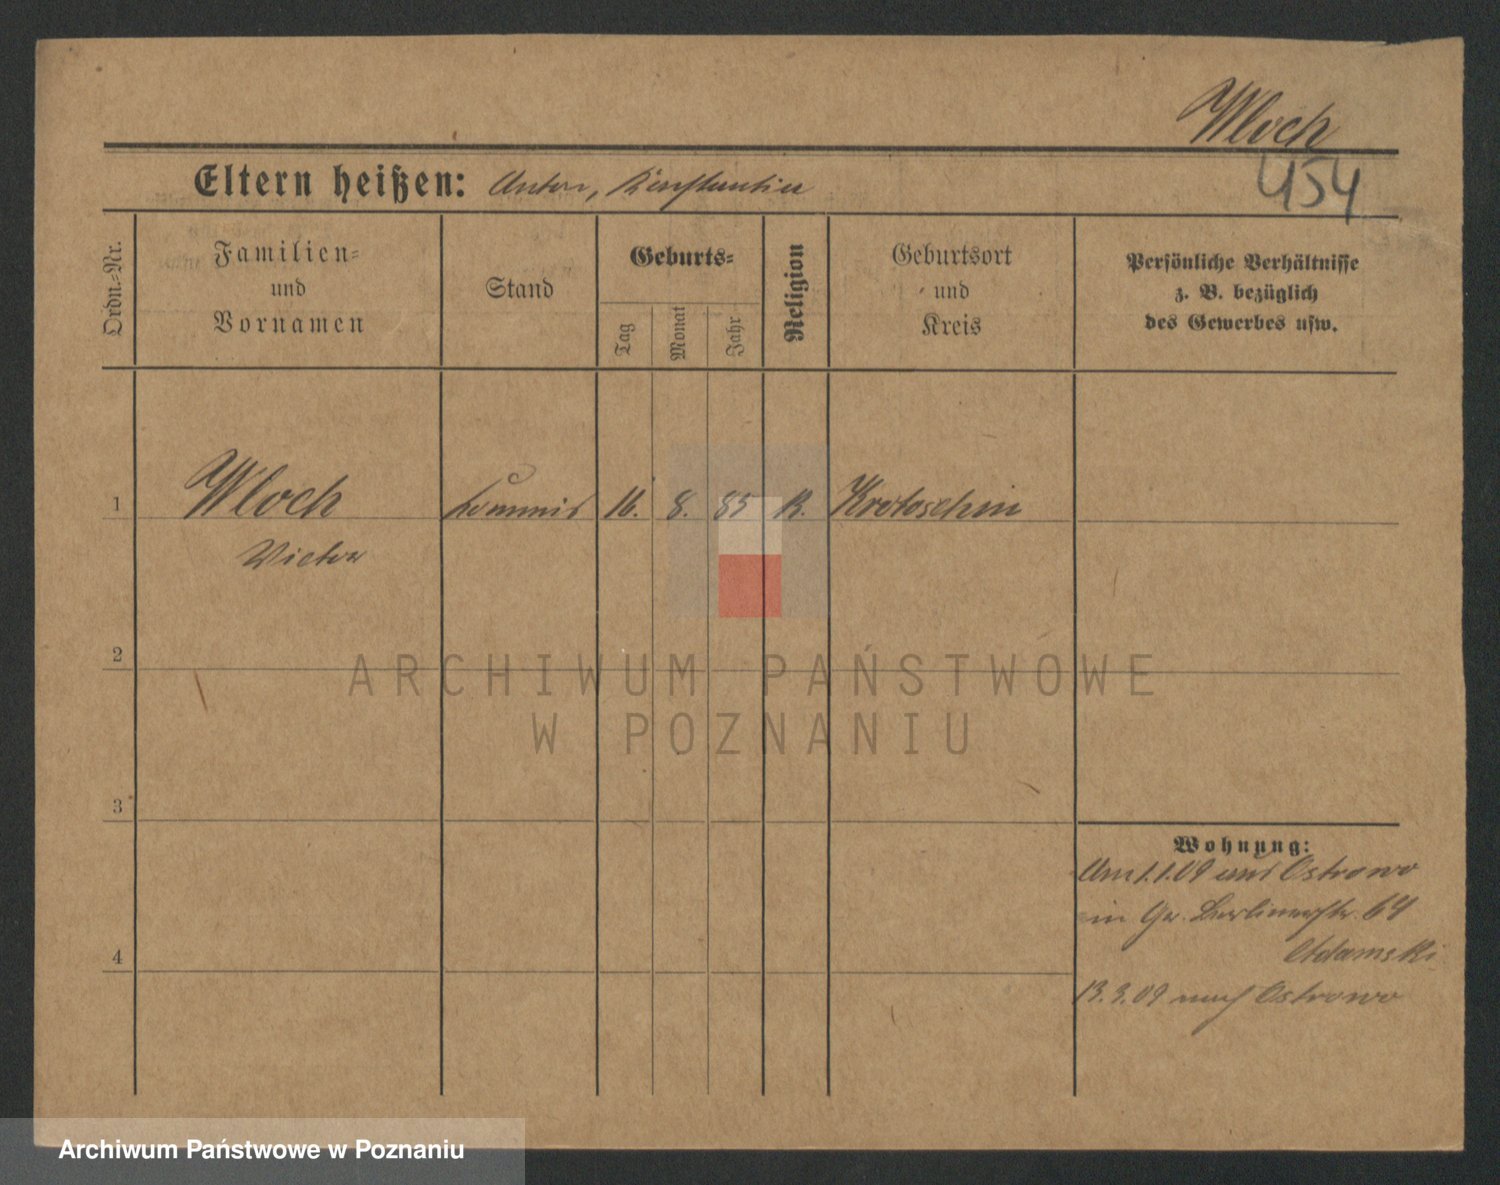 Wloch
454
Eltern heißen: Anton, Konstantia
Ordn.-Nr.
Familien-
und
Vornamen
Stand
Geburts-
Tag
Monat
Jahr
Religion
Geburtsort
und
Kreis
Persönliche Verhältnisse
z. B. bezüglich
des Gewerbes usw.
1
Wloch
Kommis
16.
8.
85
K.
Krotoschin
Victor
2
ARCHIWUM PAŃSTWOWE
W POZNANIU
3
Wohnung:
Am 1.1.09 aus Ostrowo
in Gr. Berlinerstr. 64
Adamski
4
13.3.09 nach Ostrowo
Archiwum Państwowe w Poznaniu